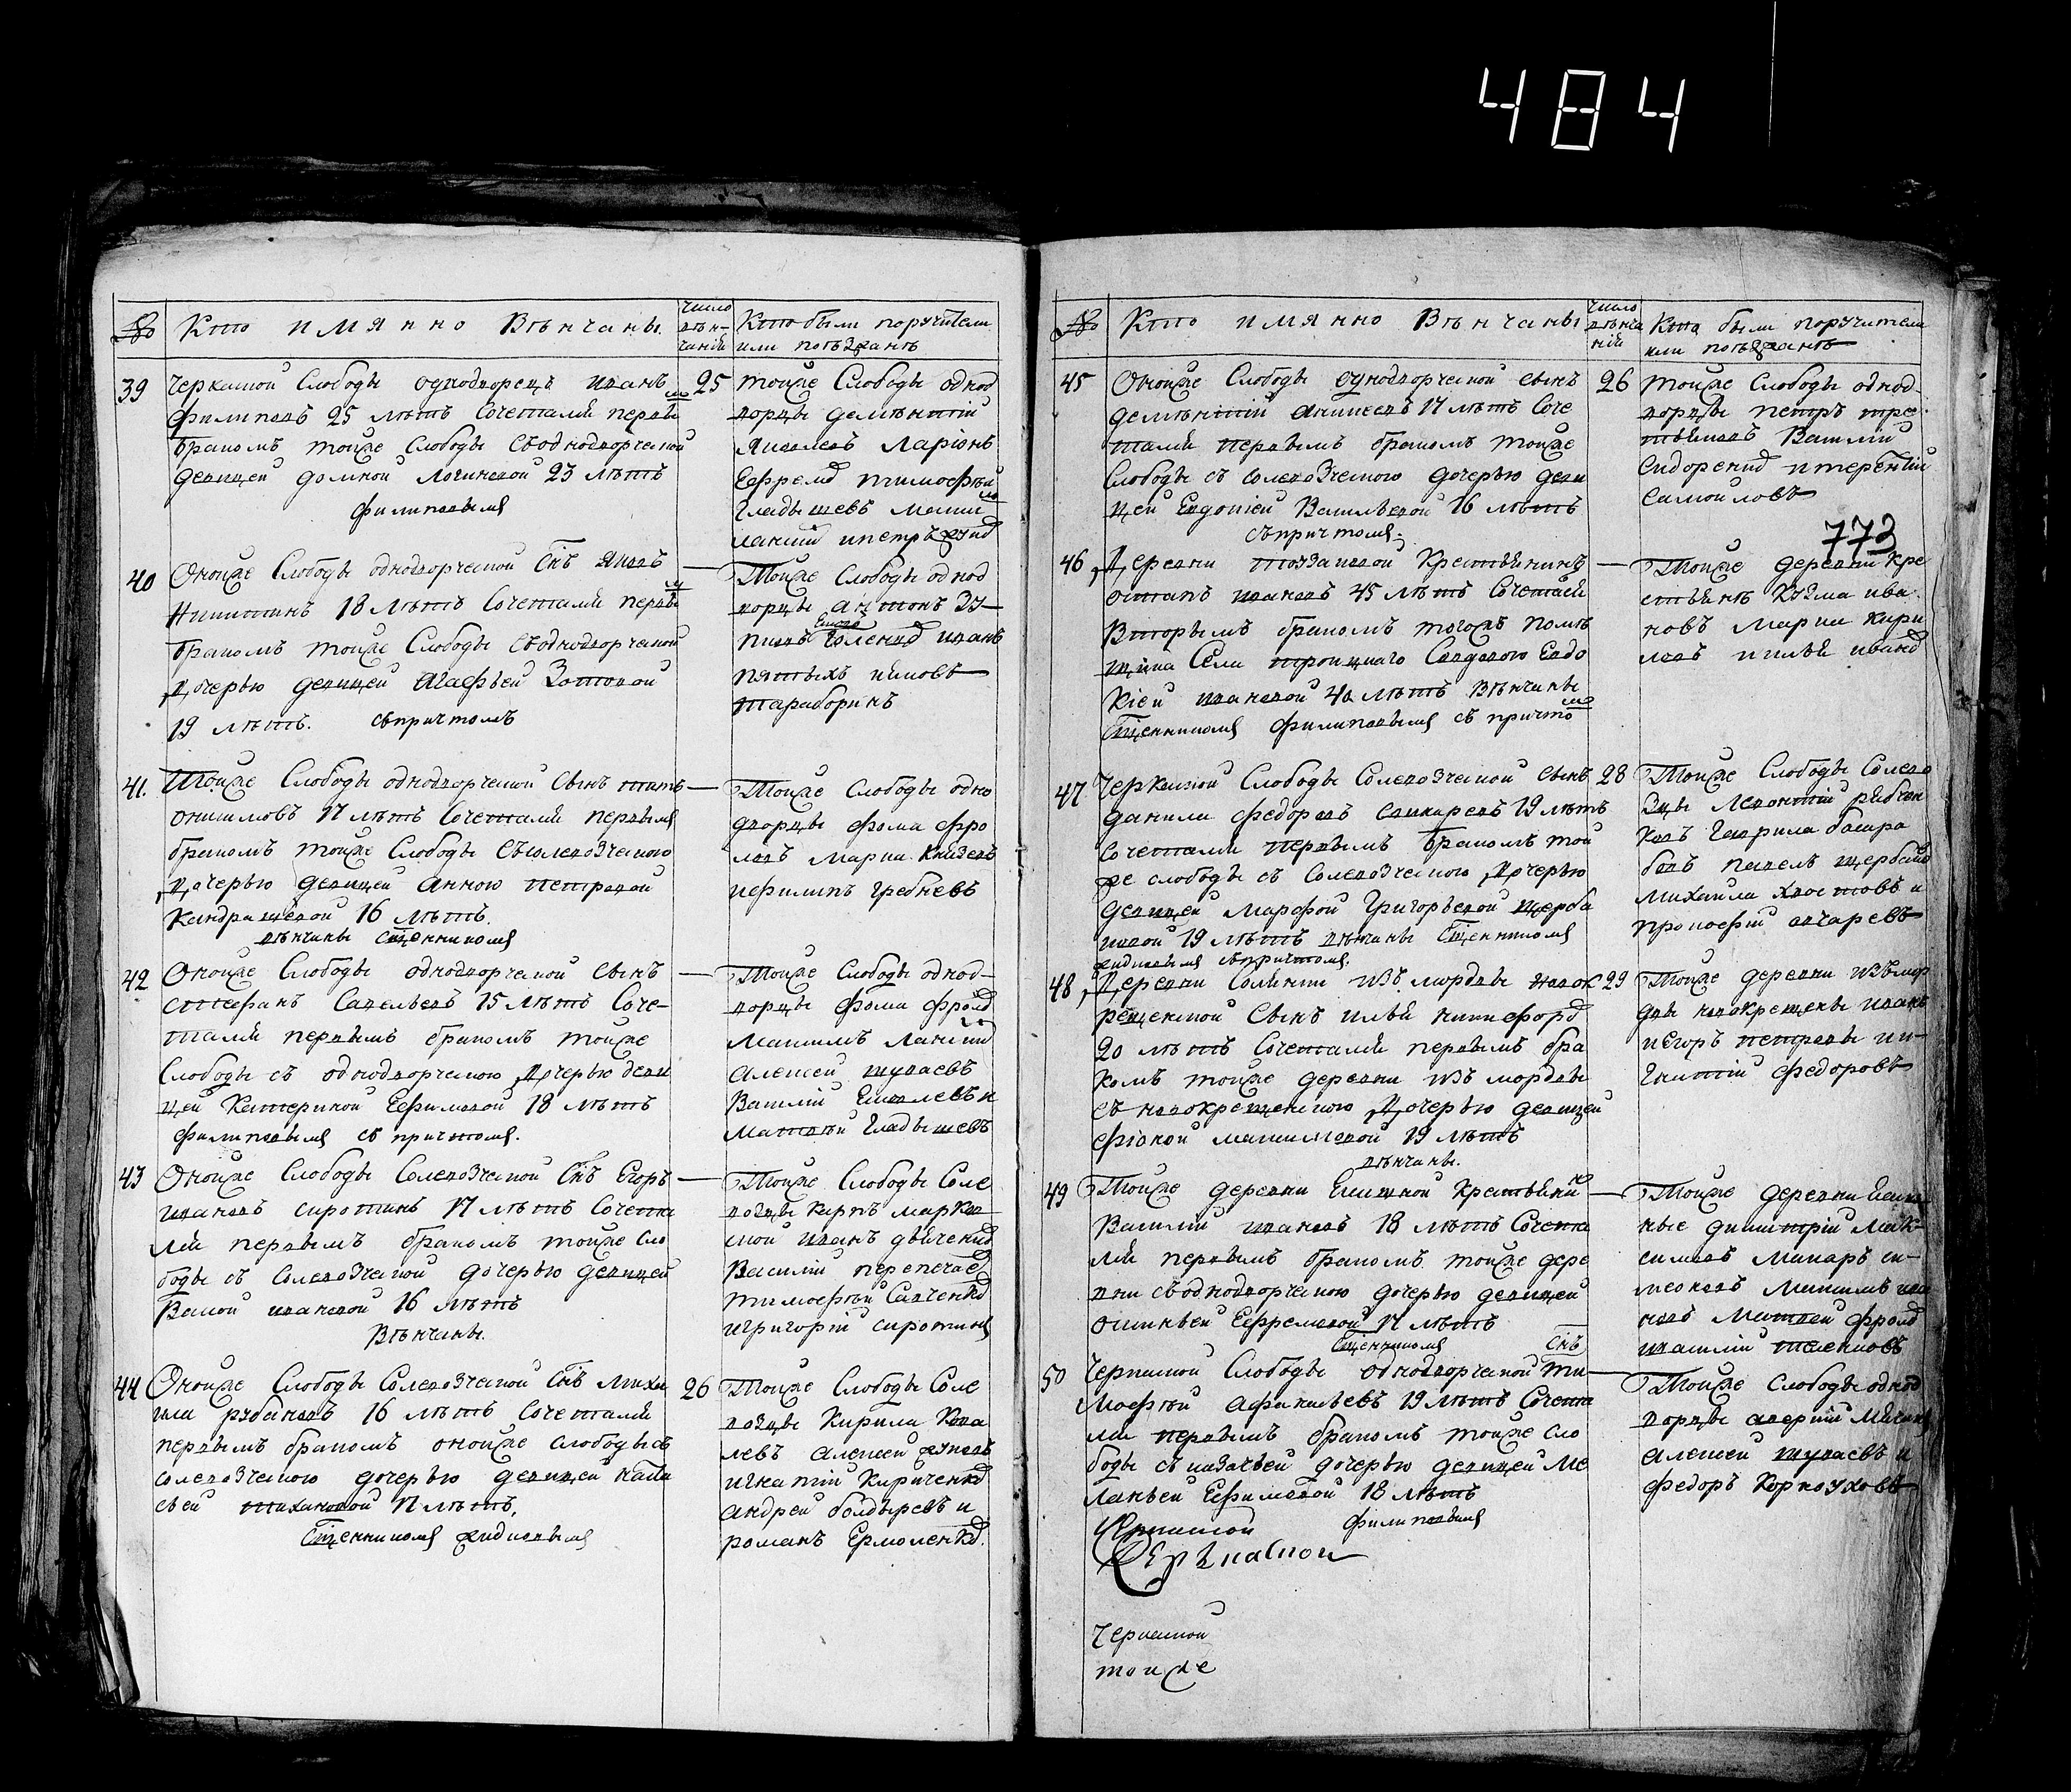 484
№ Кто имянно Вѣнчаны.
число вѣнчаній
Кто были поручители или поѣзжанѣ
39 черкаской Слободы однодворецъ иванъ
филиповъ 25 лѣтъ Сочетался первы мъ
бракомъ тойже Слободы съ однодворческой
девицей домной Логиновой 23 лѣтъ
филиповымъ
25
тойже Слободы однод
ворцы дементій
Яковлевъ Ларіонъ
Ефремо тимофѣй
Гладышевъ
40 Онойже Слободы однодворческой Снъ яковъ
Никитинъ 18 лѣтъ Сочетался первы м
бракомъ тойже Слободы съ однодворческой
дочерью девицей Агафьей Зотовой
19 лѣтъ. съ причтомъ
—
Тойже Слободы однод
ворцы антонъ
иванъ
пятыхъ
тараборинъ
41. Тойже Слободы однодворческой Сынъ титъ
онисимовъ 17 лѣтъ Сочетался первымъ
бракомъ тойже Слободы съ солевозческою
дочерью девицей анною петровой
Кандрашевой 16 лѣтъ.
вѣнчаны Сщенникомъ
—
Тойже Слободы одно
дворцы фома фро
ловъ марки Князевъ
и филипъ Гребневъ
42 Онойже Слободы однодворческой Сынъ
стефанъ Савельевъ 15 лѣтъ Соче-
тался первымъ бракомъ тойже
Слободы съ однодворческою дочерью деви
цей Катериной Ефимовой 18 лѣтъ
филиповымъ съ причтомъ.
—
Тойже Слободы однод-
ворцы фома фроло
Максимъ
алексей шуваевъ
Василій Яковлевъ и
Матвѣй Гладышевъ
43 Онойже Слободы Солевозческой Снъ Егоръ
ивановъ сиротинъ 17 лѣтъ Сочета
лся первымъ бракомъ тойже Сло
боды съ Солевозческой дочерью девицей
Васой ивановой 16 лѣтъ
Вѣнчаны.
—
Тойже Слободы Соле
возцы карпъ
иванъ
Василій перепечае
тимофѣй Савченко
и григорій сиротинъ
44 Онойже Слободы Солевозческой Снъ Миха
ила рубановъ 16 лѣтъ Сочетался
первымъ бракомъ онойже слободы съ
солевозческою дочерью девицей ната
сьей тихановой 17 лѣтъ,
Сщенникомъ
26
Тойже Слободы Соле
возцы Кирила Кова
левъ алексей
игнатій Кириченко
андрей болдыревъ и
романъ Ермоленко.
№ Кто имянно Вѣнчаны
число вѣнча ній
Кто были поручители или поѣзжанѣ
45 Онойже Слободы однодворческой сынъ
дементій аникеевъ 17 лѣтъ Соче
тался первымъ бракомъ тойже
Слободы съ солевозческою дочерью деви
цей Евдотіей Васильевой 16 лѣтъ
съ причтомъ.
26
тойже Слободы однод-
ворцы петръ тре
тьяковъ Василій
Сидоренко и терентій
самойловъ
773
46 Деревни Крестьянинъ
ивановъ 45 лѣтъ Сочетался
Вторымъ бракомъ тогожъ помѣ
щика Села троицкаго Свдовою Евдо
кіей ивановой 40 лѣтъ Вѣнчаны
Сщенникомъ филиповымъ съ причто мъ
—
Тойже деревни Кре
стьянѣ Кузма ива
новъ Марки Кири
ловъ и илья ивано
47 Черкаской Слободы Солевозческой сынъ
данила федоровъ 19 лѣтъ
Сочетался первымъ бракомъ той
же слободы съ Солевозческою дочерью
девицей Марфой Григорьевой щерба
ковой 19 лѣтъ вѣнчаны Сщенникомъ
съ причтомъ.
28
Тойже Слободы Солево
зцы Леонтій
Гаврила
павелъ щербако
михайла хвостовъ и
прокофій овчаревъ
48 Деревни изъ мордвы новок
рещенской Сынъ илья никифоро
20 лѣтъ Сочетался первымъ бра
комъ тойже деревни изъ мордвы
съ новокрещенскою дочерью девицей
Фіоной максимовой 19 лѣтъ
вѣнчаны.
29
Тойже деревни изъ мор
двы новокрещены иванъ
и егоръ петровы и и-
гнатій федоровъ
49 Тойже деревни Крестьяни нъ
Василій ивановъ 18 лѣтъ Сочета
лся первымъ бракомъ тойже дере
вни съ однодворческою дочерью девицей
Ефремовой 17 лѣтъ
Сщенникомъ
—
Тойже деревни
дмитрій Мак-
симовъ Макаръ си-
меоновъ Максимъ ива
ново Матвей фроло
50 Черкаской Слободы однодворческой Снъ ти
мофѣй афанасьевъ 19 лѣтъ Сочета
лся первымъ бракомъ тойже сло
боды съ казачьей дочерью девицей Ме
ланьей Ефимовой 18 лѣтъ
филиповымъ
—
Тойже слободы однод
ворцы
алексей шуваевъ и
федоръ Корноуховъ
Черкаской
Черкаской
тойже